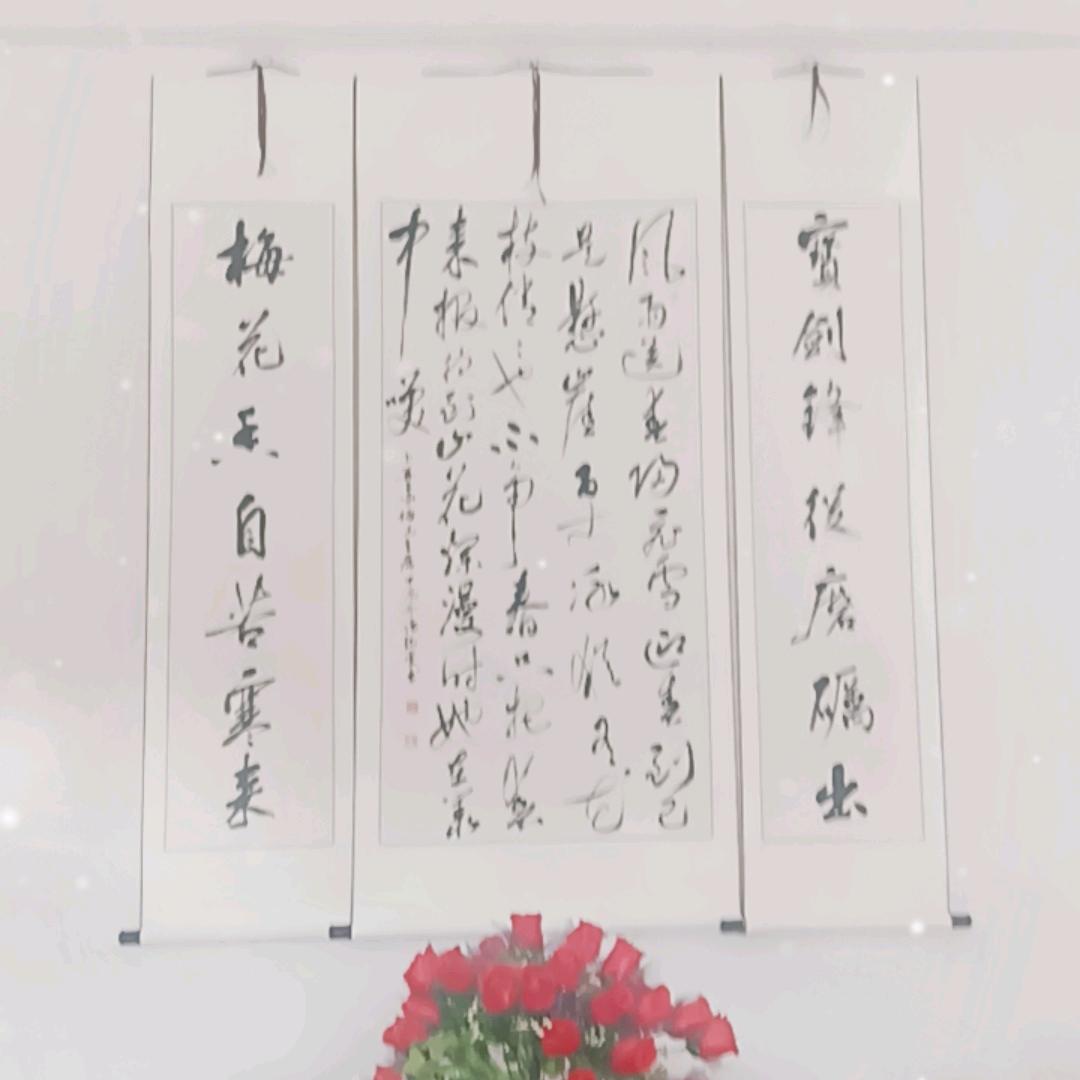 寶劍鋒從磨礪出
风雨送春归飞雪迎春到已
是懸崖百丈冰犹有花
枝俏俏也不争春只把春
来报待到山花烂漫时她在丛
中笑
梅花香自苦寒来